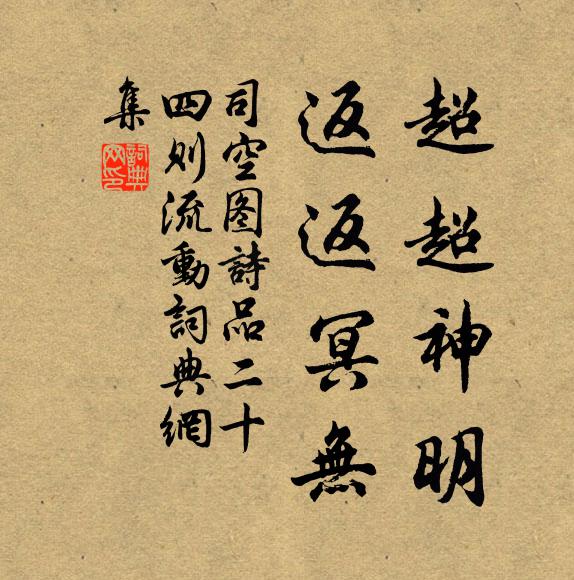 超超神明
返返冥無
司空图詩品二十
四则流動詞典網
集
詞典
网印